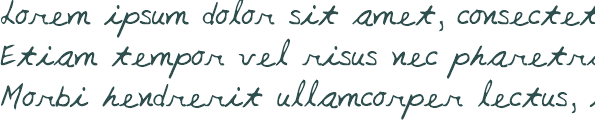 Lorem ipsum dolor sit amet, consectet
Etiam tempor vel risus nec pharetr
Morbi hendrerit ullamcorper lectus,